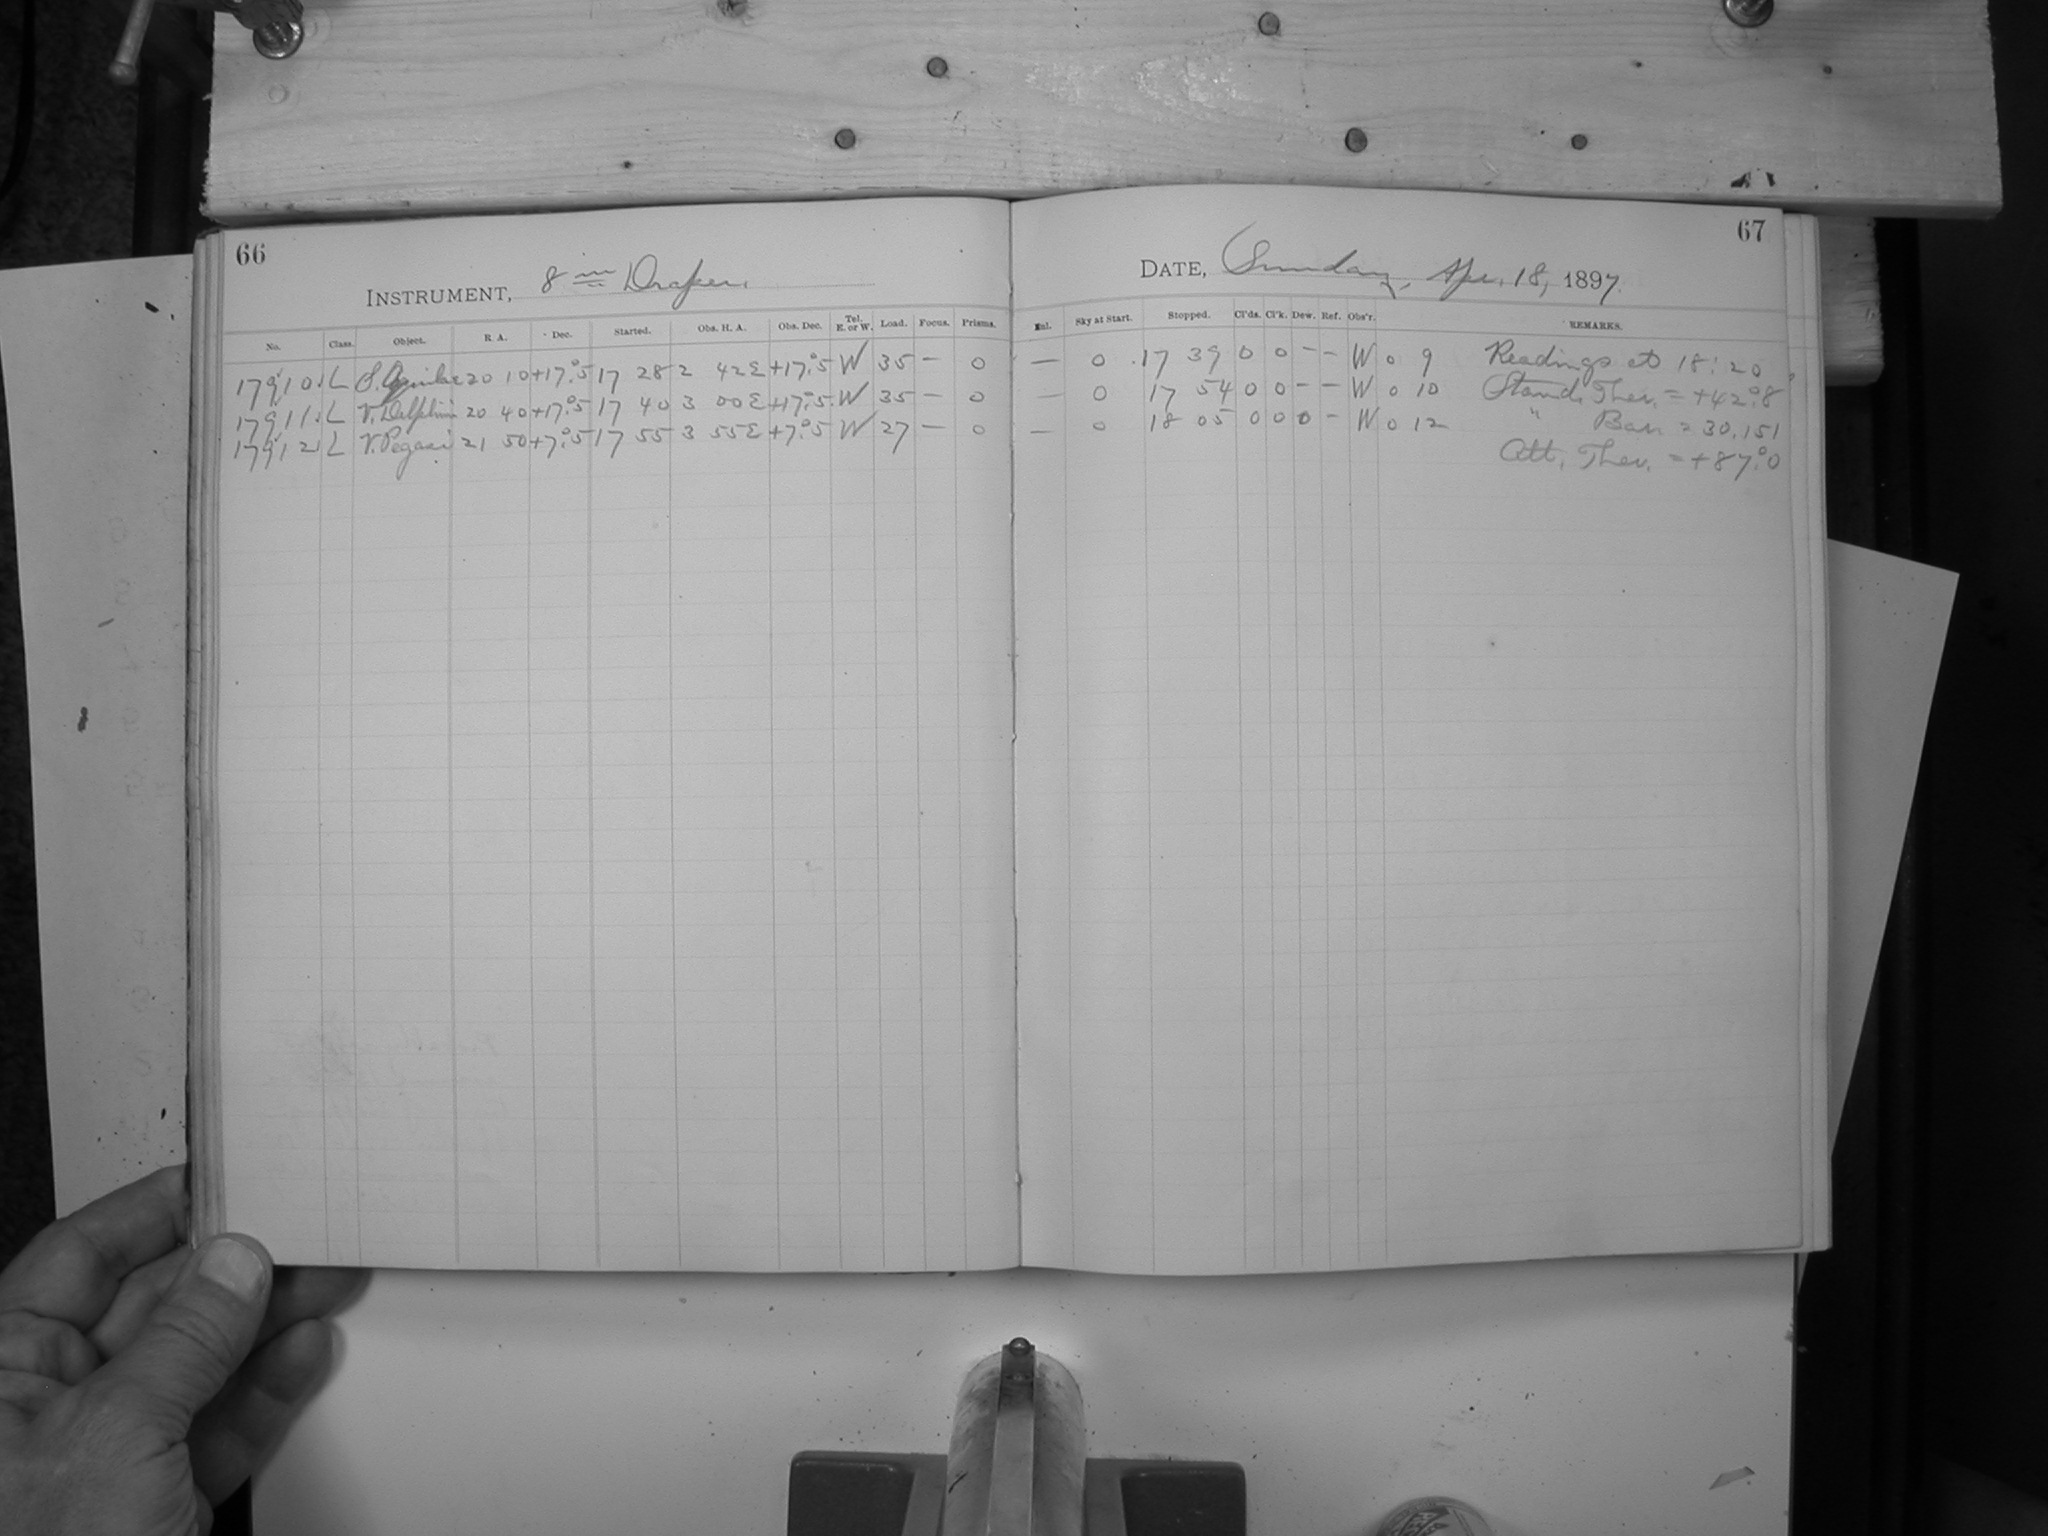 66
INSTRUMENT, 8 in Draper.
No. Class. Object. R. A. Dec. Started. Obs. H. A. Obs. Dec. Tel. E. or W. Load. Focus. Prisms.
17910 L S. Aquilae 20 10 +17.°5 17 28 2 42E +17.°5 W 35 — 0
17911 L V. Delphini 20 40 +17.°5 17 40 3 00E +17.°5 W 35 — 0
17912 L V. Pegasi 21 50 +7.°5 17 55 3 55E +7.°5 W 27 — 0
67
DATE, Sunday, Apr. 18, 1897.
Enl. Sky at Start. Stopped. Cl'ds. Cl'k. Dew. Ref. Obs'r. REMARKS.
— 0 17 39 0 0 – – W 0 9 Readings at 18:20
— 0 17 54 0 0 – – W 0 10 Stand. Ther. = +42.°8
— 0 18 05 0 0 0 – W 0 12 " Bar. = 30.151
Att. Ther. = +87.°0